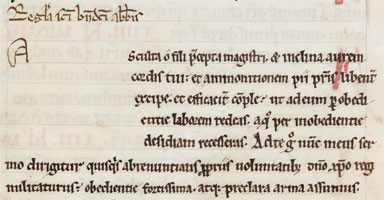 Regla sci bndcti abbis
A
Sculta o fili p̄cepta magistri. & inclina aurem
cordis tui. et ammonitionem pii pr̄is libent̄
excipe. et efficacit̄ cōple. ut ad eum p̱ obedi
entie laborem redeas. a q̊ per inobedientie
desidiam recesseras. Ad te g̊ nunc meus ser
mo dirigitur quisq̇s abrenuntians p̱priis voluntatib; dn̄o xp̄o regi
militaturus. obedientie fortissima. atq; preclara arma assumis.